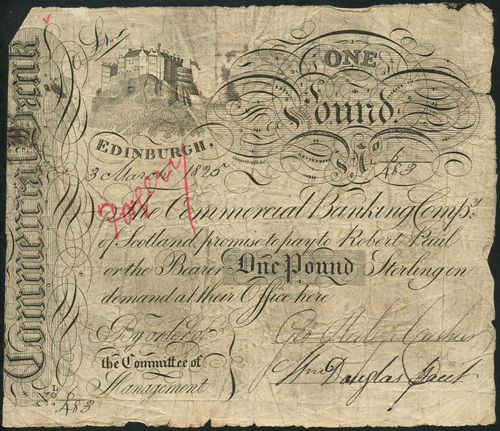 Commercial Bank
ONE
Pound.
EDINBURGH,
3 March 1825
No
483
Forgery
The Commercial Banking Compy.
of Scotland, promise to pay to Robert Paul
or the Bearer One Pound Sterling on
demand at their Office here
By order of
the Committee of
Management
Cashier
Wm Douglas Acct
No
483